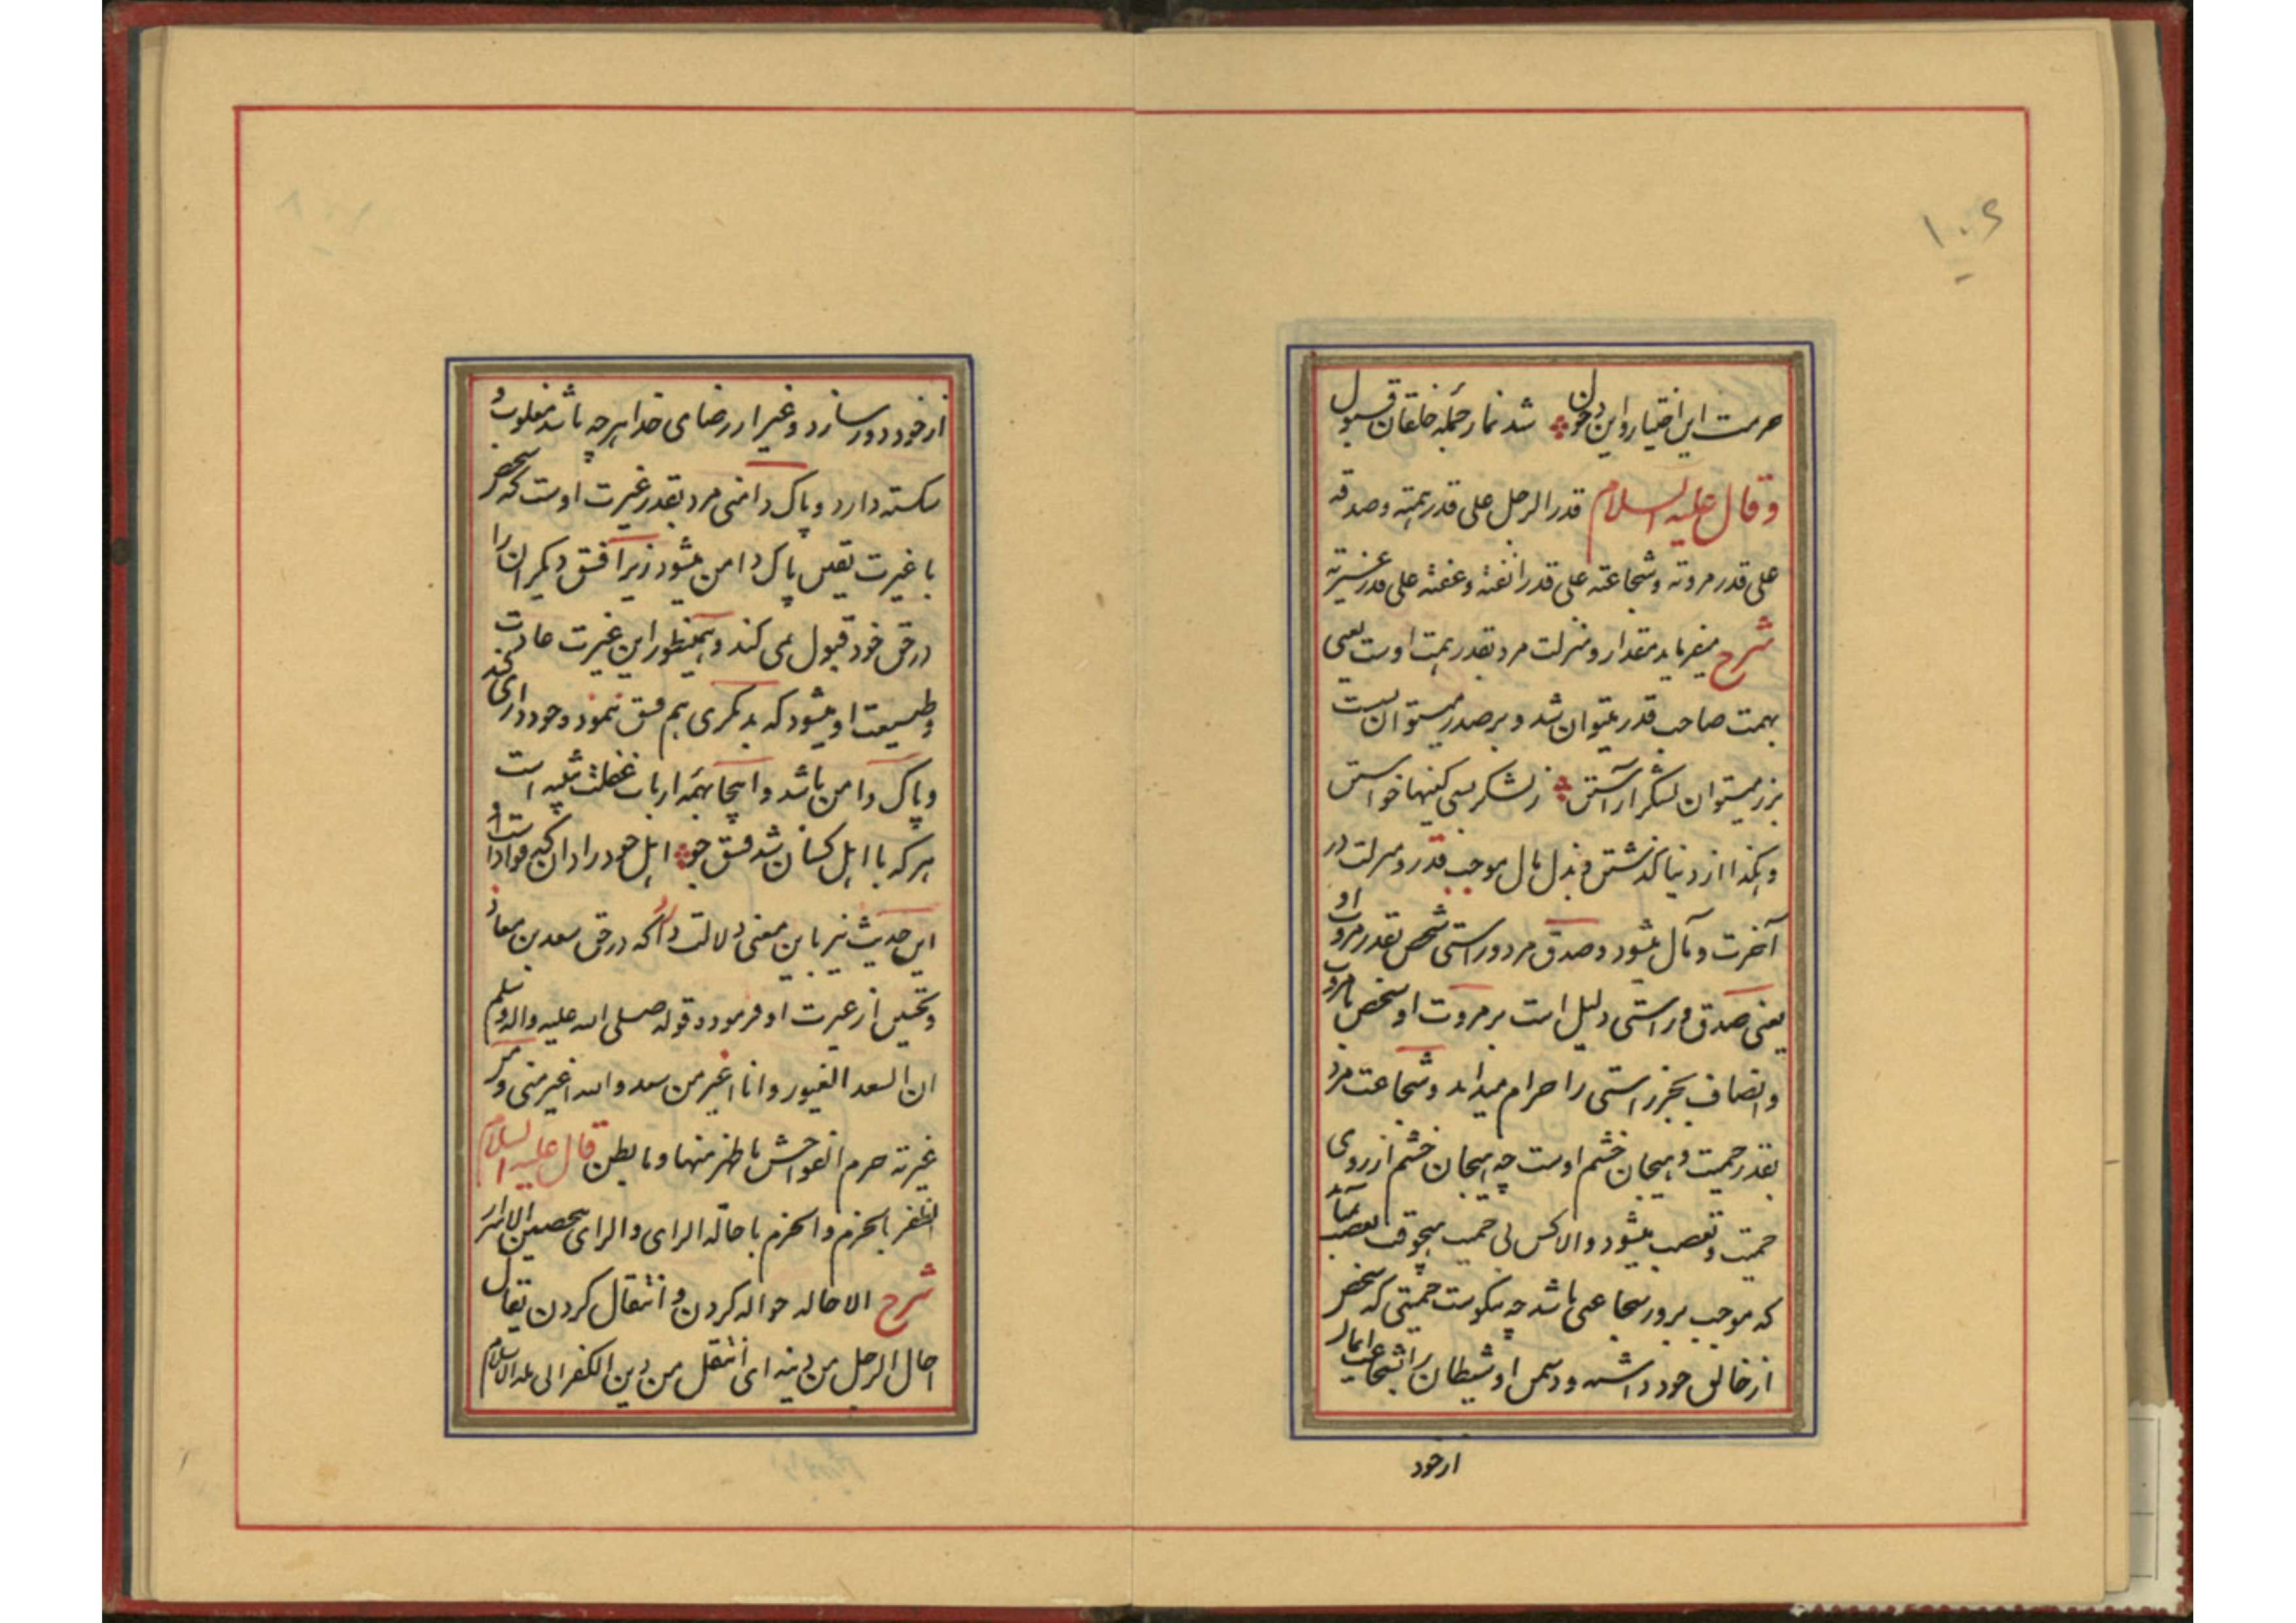 ۱۰۶
حرمت این اختیار و این دخول شد نماز جمله خلقان قبول
وقال علیه السلام قدر الرجل علی قدر همته و صدقه
علی قدر مروته و شجاعته علی قدر انفته و عفته علی قدر غیرته
شرح میفرماید مقدار و منزلت مرد بقدر همت اوست یعنی
بهمت صاحب قدر میتوان شد و بر صدر میتوان نشست
بزر میتوان لشکر آراستن ز لشکر بسی کینها خواستن
و هکذا از دنیا گذشتن و بذل مال موجب قدر و منزلت در
آخرت و مآل میشود و صدق مرد و راستی شخص بقدر مروت او
یعنی صدق و راستی دلیل است بر مروت او شخص با مروت
و انصاف بجز راستی را حرام میداند و شجاعت مرد
بقدر حمیت و هیجان خشم اوست چه هیجان خشم از روی
حمیت و تعصب میشود و الا کس بی حمیت هیچوقت بغضب نیاید
که موجب بروز شجاعتی باشد چه نیکوست حمیتی که شخص
از خالق خود داشته و دشمن او شیطان را بشجاعت
از خود
از خود دور سازد و غیر از رضای خدا هرچه باشد مغلوب و
شکسته دارد و پاک دامنی مرد بقدر غیرت اوست که شخص
با غیرت یقین پاک دامن میشود زیرا فسق دیگران را
در حق خود قبول نمی کند و همینطور این غیرت عادت
و طبیعت او میشود که بدیگری هم فسق ننمود و خودداری کند
و پاک دامن باشد و اینجا همه ارباب غفلت شبیه است
هر که با اهل کسان شد فسق جو اهل خود را دان که قواد است او
این حدیث نیز باین معنی دلالت دارد که در حق سعد بن معاذ
و تحسین از غیرت او فرمودد قوله صلی الله علیه واله وسلم
ان السعد الغیور وانا اغیر من سعد والله اغیر منی و من
غیرته حرم الفواحش ما ظهر منها وما بطن قال علیه السلام
الظفر بالحزم والحزم باجالة الرای والرای بتحصین الاسرار
شرح الاحاله حواله کردن و انتقال کردن یقال
احال الرجل من دینه ای انتقل من دین الکفر الی ملة الاسلام